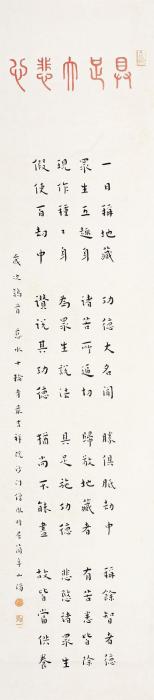 具足大悲心
一日稱地藏 功德大名聞 勝俱胝劫中 稱餘智者德
眾生五趣身 諸苦所逼切 歸敬地藏者 有苦悉皆除
現作種〻身 為眾生說法 具足施功德 悲愍諸眾生
假使百劫中 讚說其功德 猶尚不能盡 故皆當供養
歲次鶉首 十輪